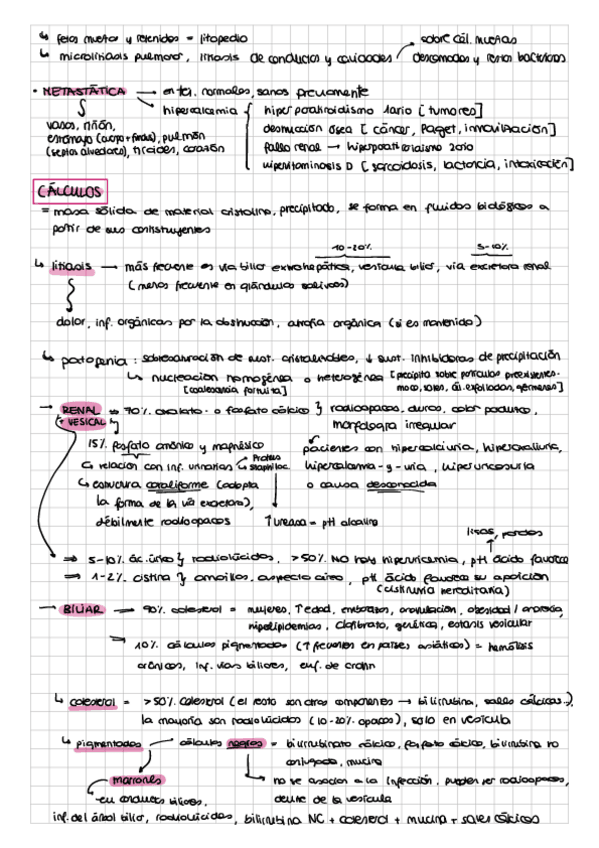 ↳ fetos muertos y retenidos = litopedio
sobre cél. muertas
↳ microlitiasis pulmonar, litiasis de conductos y cavidades descamadas y restos bacterianos
• METASTÁTICA → en tej. normales, sanos previamente
hipercalcemia { hiperparatiroidismo 1ario [tumores]
vasos, riñón,
estómago (cuerpo + fundus), pulmón
(septos alveolares), tiroides, corazón
destrucción ósea [cáncer, Paget, inmovilización]
fallo renal → hiperparatiroidismo 2ario
hipervitaminosis D [sarcoidosis, lactancia, intoxicación]
CÁLCULOS
= masa sólida de material cristalino, precipitado, se forma en fluidos biológicos a
partir de sus constituyentes
10-20% 5-10%
↳ litiasis → más frecuente en vía biliar extrahepática, vesícula biliar, vía excretora renal
(menos frecuente en glándulas salivares)
dolor, inf. orgánicas por la obstrucción, atrofia orgánica (si es mantenido)
↳ patogenia: sobresaturación de sust. cristalizables, ↓ sust. inhibidoras de precipitación
↳ nucleación homogénea o heterogénea [precipita sobre partículas preexistentes:
[coalescencia fortuita] moco, sales, cél. exfoliadas, gérmenes]
→ RENAL ⇒ 70% oxalato o fosfato cálcico } radioopacos, duros, color parduzco,
(+ VESICAL) morfología irregular
15% fosfato amónico y magnésico
pacientes con hipercalciuria, hiperoxaluria,
↳ relación con inf. urinarias Proteus
Staphiloc.
hipercalcemia-y-uria, hiperuricosuria
↳ estructura coraliforme (adopta o causa desconocida
la forma de la vía excretora),
débilmente radioopacos ↑ ureasa = pH alcalino
lisos, pardos
⇒ 5-10% ác. úrico } radiolúcidos, >50% NO hay hiperuricemia, pH ácido favorece
⇒ 1-2% cistina } amarillos, aspecto céreo, pH ácido favorece su aparición
(cistinuria hereditaria)
→ BILIAR → 90% colesterol = mujeres, ↑ edad, embarazos, ovulación, obesidad / anorexia,
hipolipidemias, clofibrato, genética, estasis vesicular
→ 10% cálculos pigmentados (↑ frecuentes en países asiáticos) = hemólisis
crónicas, inf. vías biliares, enf. de crohn
↳ colesterol = >50% colesterol (el resto son otros componentes → bilirrubina, sales cálcicas..)
la mayoría son radiolúcidos (10-20% opacos), solo en vesícula
↳ pigmentados → cálculos negros = bilirrubinato cálcico, fosfato cálcico, bilirrubina no
conjugada, mucina
marrones
no se asocian a la infección, pueden ser radioopacos,
↳ en conductos biliares, dentro de la vesícula
inf. del árbol biliar, radiolúcidos, bilirrubina NC + colesterol + mucina + sales cálcicas